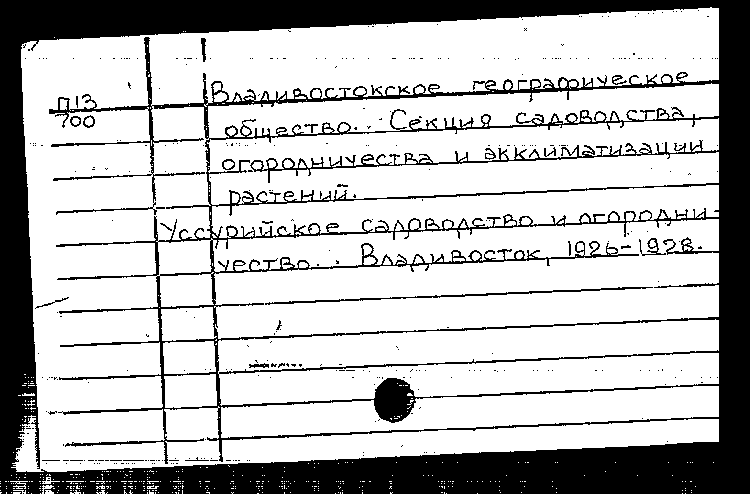 П13
700
Владивостокское географическое
общество. Секция садоводства,
огородничества и акклиматизации
растений.
Уссурийское садоводство и огородни-
чество. . Владивосток, 1926-1928.